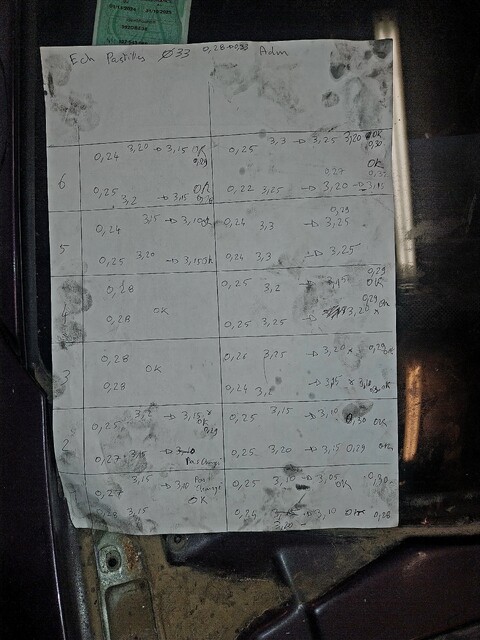 Ech Pastilles Ø33 0,28-0,33 Adm
0,24 3,20 → 3,15 OK 0,29 0,25 3,3 → 3,25 3,20 OK 0,30
6
0,25 3,2 → 3,15 OK 0,22 3,25 → 3,20 → 3,15 0,27 OK
0,24 3,15 → 3,10 OK 0,24 3,3 → 3,25 0,29
5
0,25 3,20 → 3,15 OK 0,24 3,3 → 3,25
0,28 0,25 3,2 → 3,15 0,29 OK
4
0,28 OK 0,25 3,25 → 3,20 x 0,29 OK
0,28 0,26 3,25 → 3,20 x 0,29
3 OK
0,28 0,24 3,2 → 3,15 x OK
0,25 3,2 → 3,15 x OK 0,29 0,25 3,15 → 3,10 0,30 OK
2
0,27 3,15 → 3,10 Pas Changé 0,25 3,20 → 3,15 0,29 OK
0,27 3,15 → 3,10 Pas Changé 0,25 3,10 → 3,05 OK 0,30
OK
0,28 3,15 0,25 3,15 → 3,10 OK 0,28
3,20